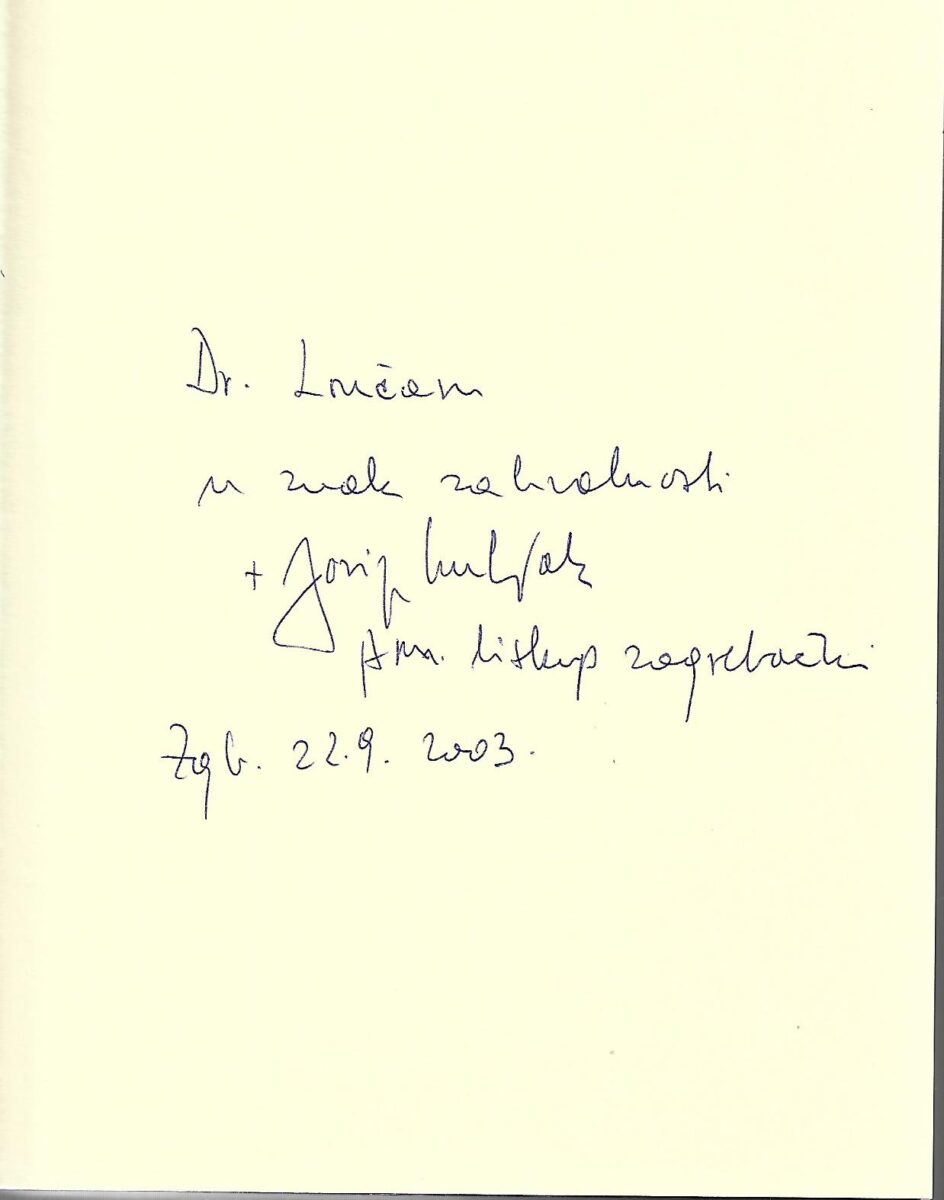 Dr. Lončaru
u znak zahvalnosti
+ Josip
pom. biskup zagrebački
Zgb. 22.9. 2003.